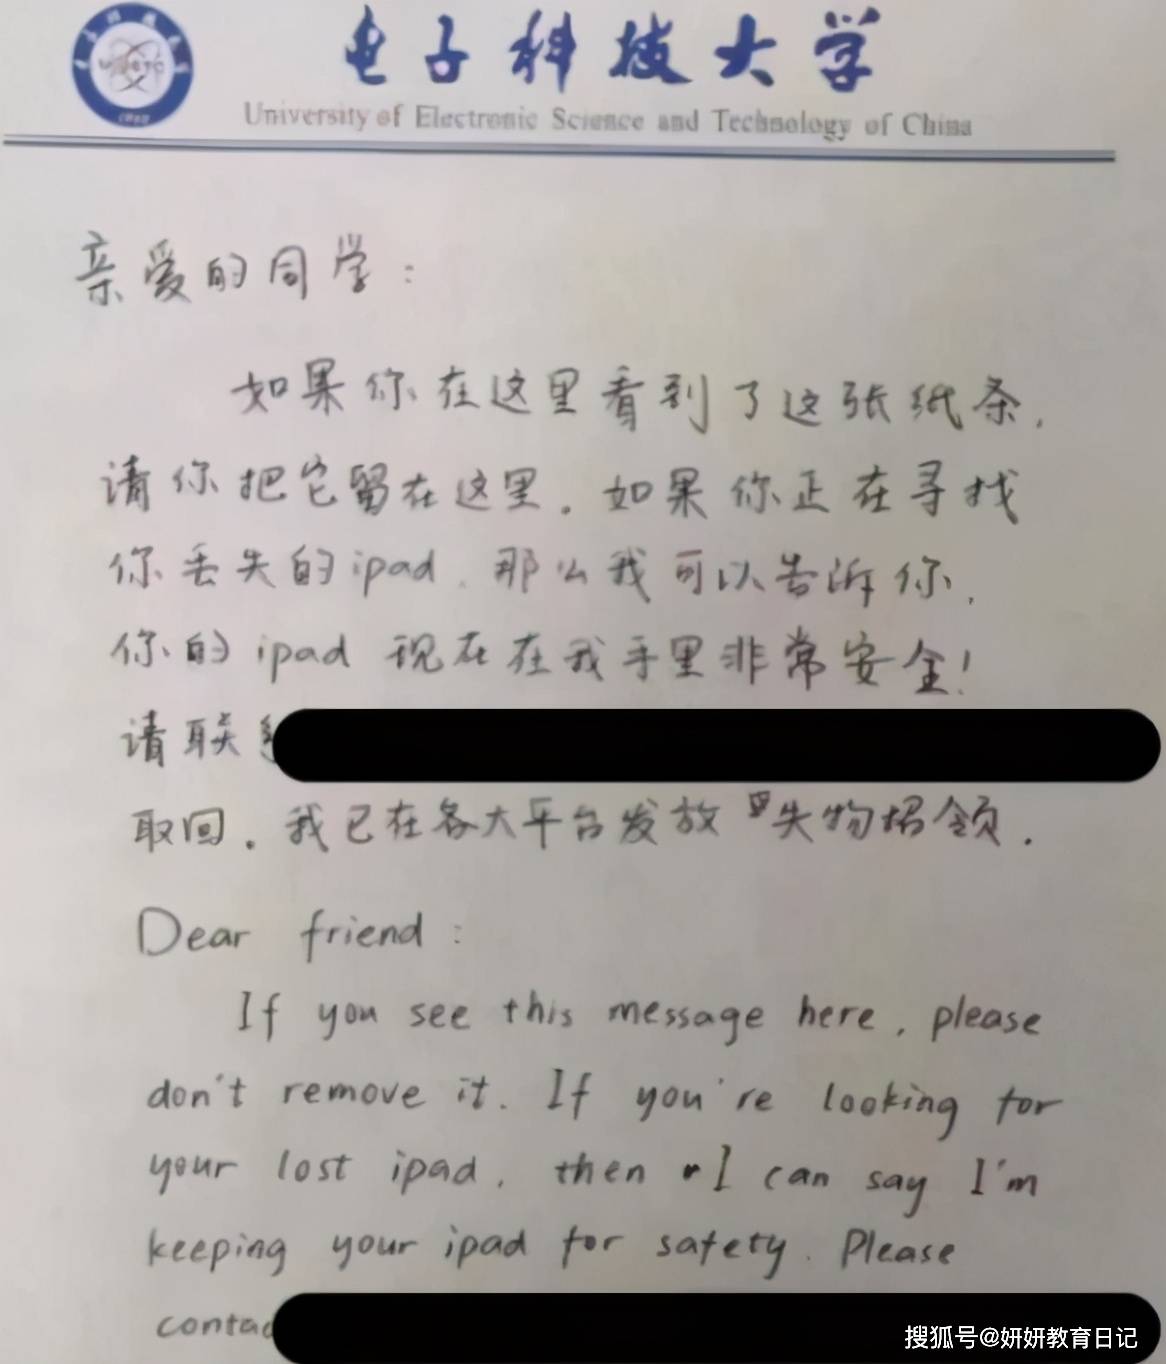 电子科技大学
University of Electronic Science and Technology of China
亲爱的同学：
如果你在这里看到了这张纸条，
请你把它留在这里。如果你正在寻找
你丢失的ipad，那么我可以告诉你，
你的ipad现在在我手里非常安全！
请联
取回。我已在各大平台发放失物招领.
Dear friend:
If you see this message here, please
don't remove it. If you're looking for
your lost ipad, then I can say I'm
keeping your ipad for safety. Please
搜狐号@妍妍教育日记